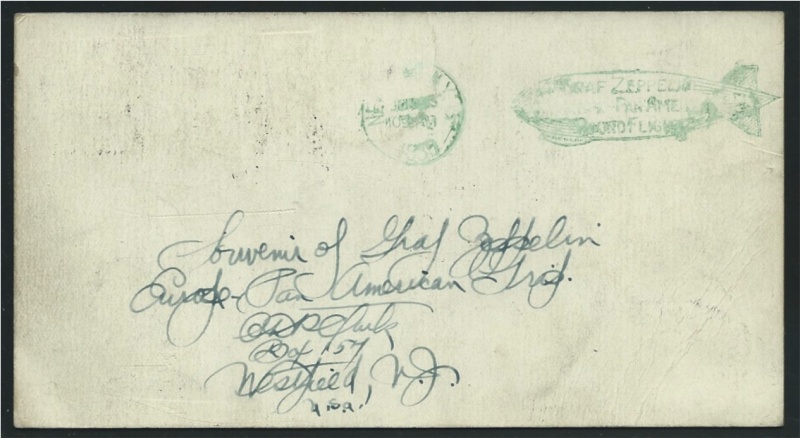 GRAF ZEPPELIN
PAN AME
ROUND FLIGHT
Souvenir of Graf Zeppelin
Europe-Pan American Trip.
Box 157,
Westfield, N.J.
U.S.A.